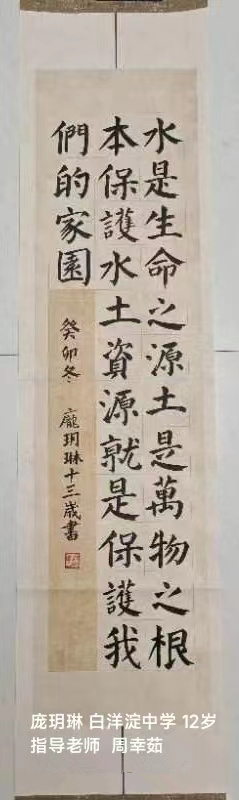 水是生命之源土是萬物之根
本保護水土資源就是保護我
們的家園
癸卯冬 龐玥琳十三歲書
庞玥琳 白洋淀中学 12岁
指导老师 周幸茹